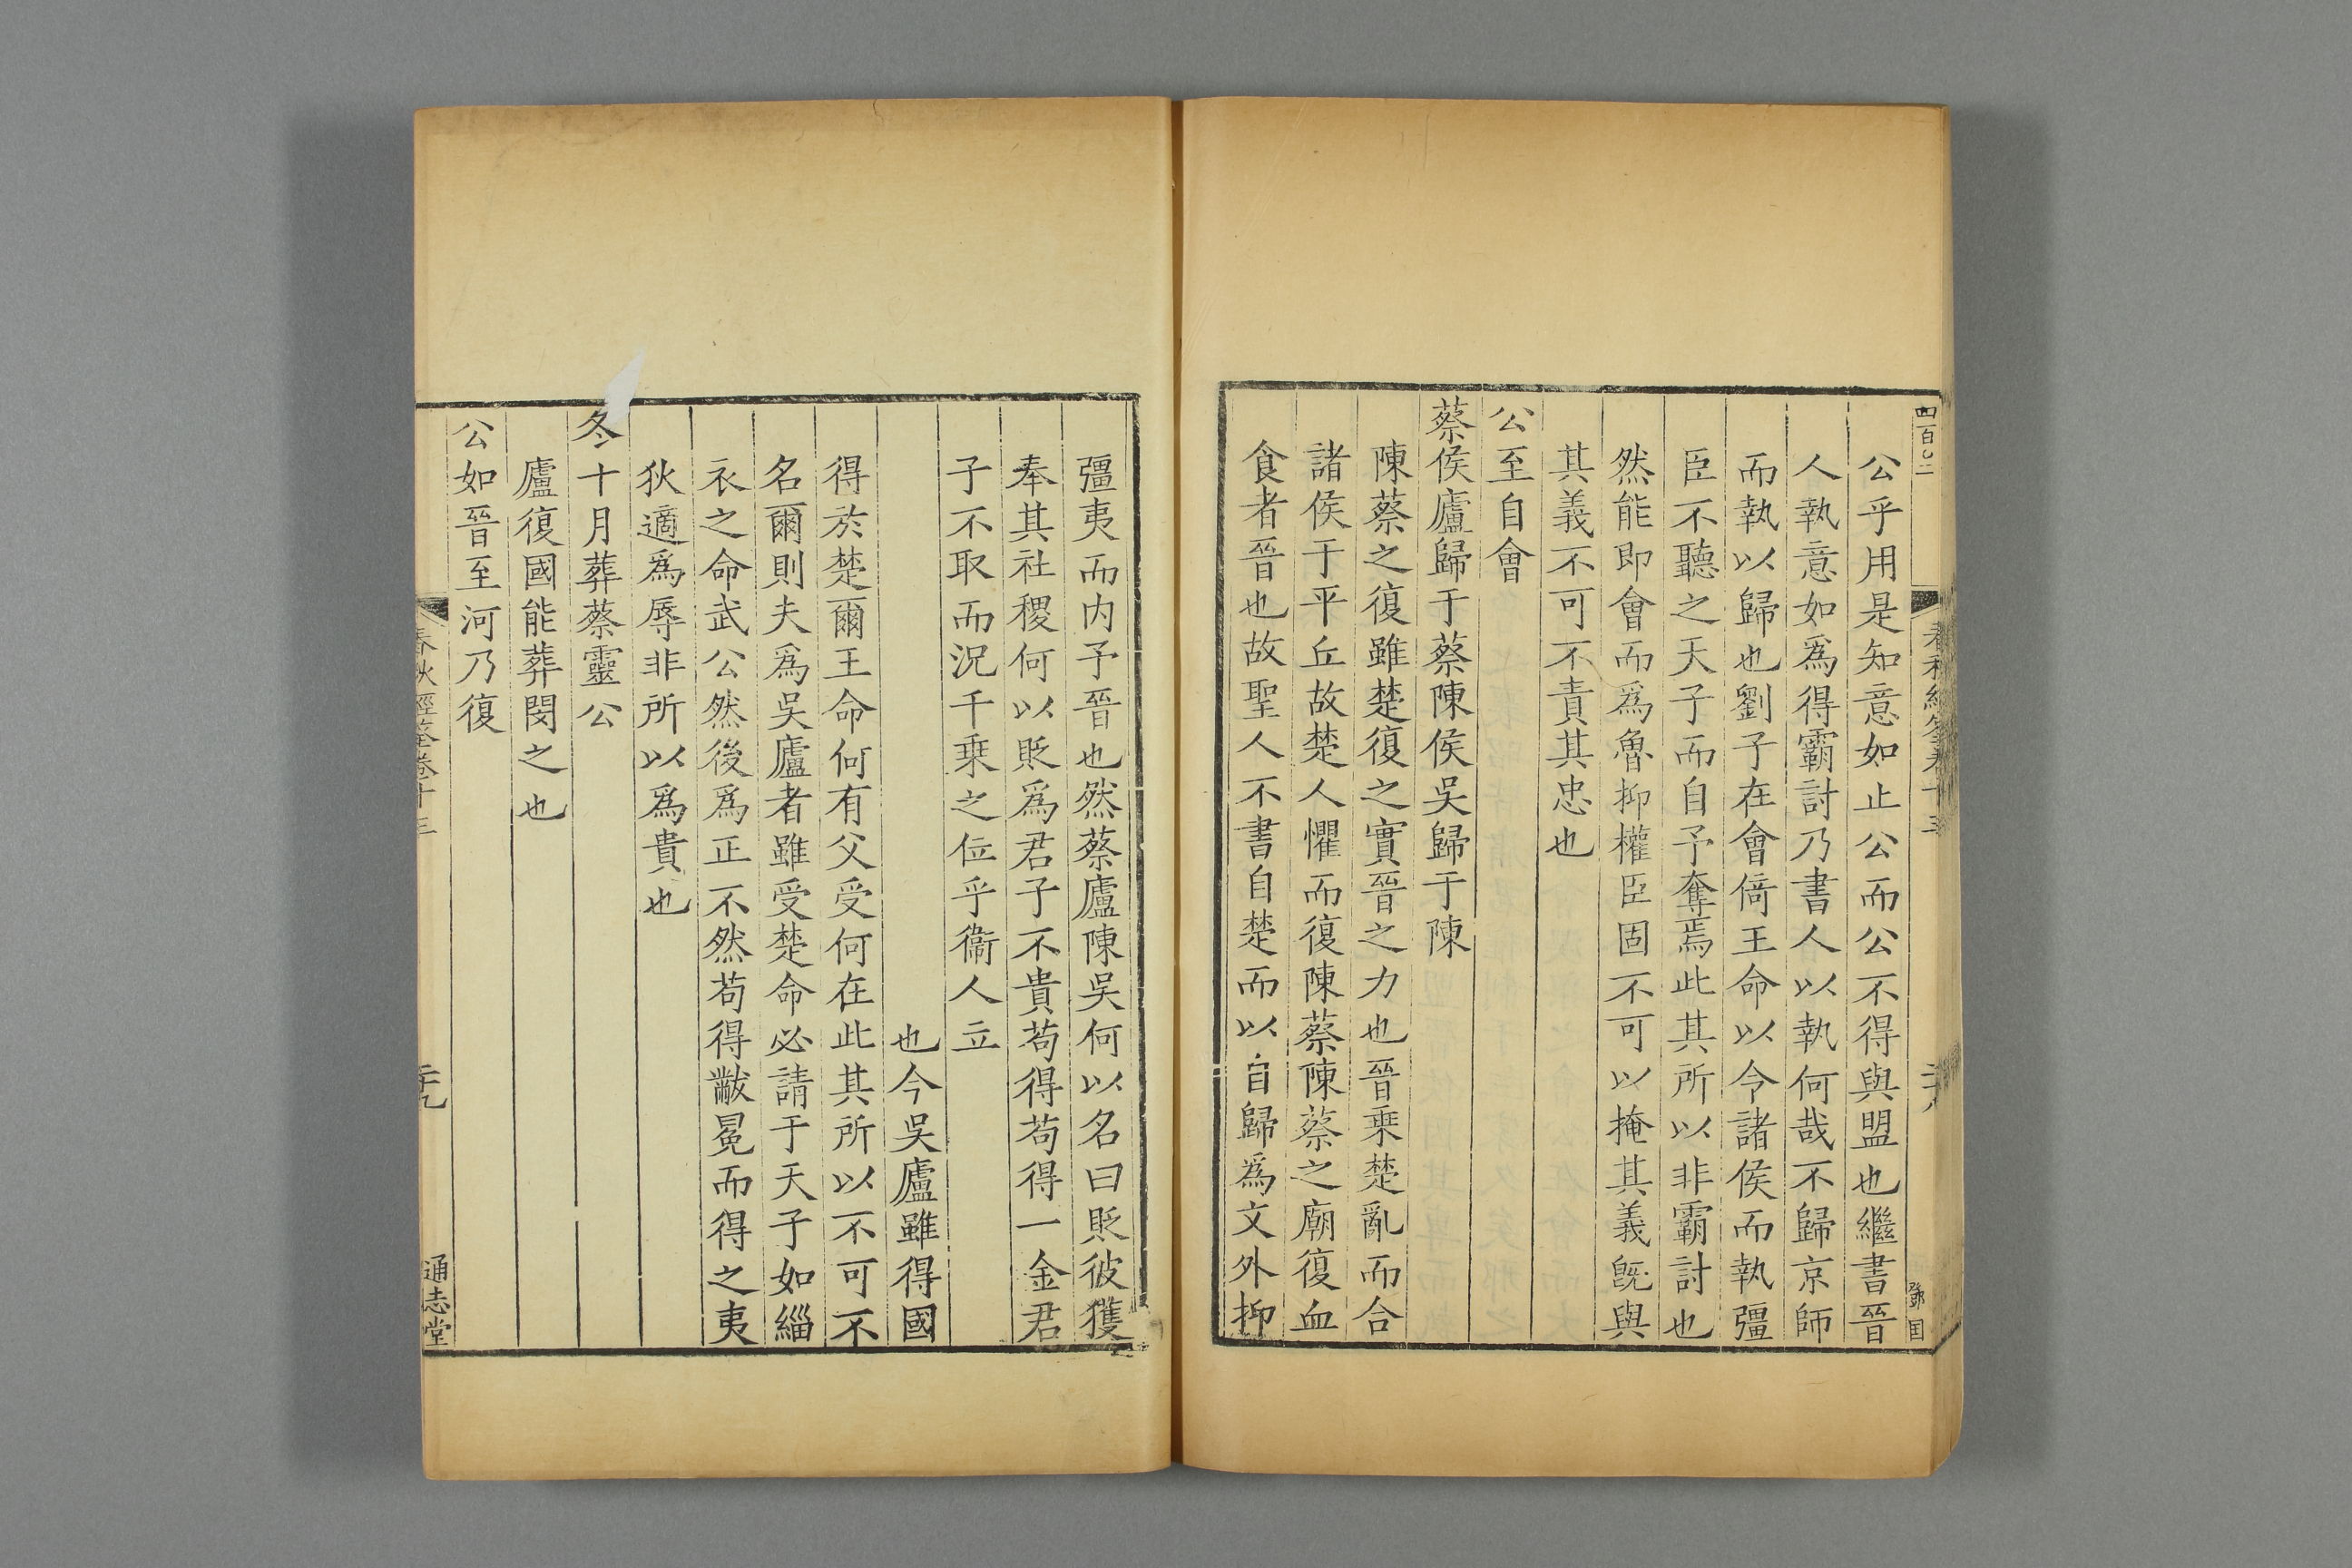 四百〇二
春秋經筌卷十三
二十八
公乎用是知意如止公而公不得與盟也繼書晉
人執意如爲得霸討乃書人以執何哉不歸京師
而執以歸也劉子在會倚王命以令諸侯而執彊
臣不聽之天子而自予奪焉此其所以非霸討也
然能即會而爲魯抑權臣固不可以掩其義旣與
其義不可不責其忠也
公至自會
蔡侯廬歸于蔡陳侯吳歸于陳
陳蔡之復雖楚復之實晉之力也晉乗楚亂而合
諸侯于平丘故楚人懼而復陳蔡陳蔡之廟復血
食者晉也故聖人不書自楚而以自歸爲文外抑
彊夷而内予晉也然蔡廬陳吳何以名曰貶彼獲
奉其社稷何以貶爲君子不貴苟得苟得一金君
子不取而況千乗之位乎衞人立
也今吳廬雖得國
得於楚爾王命何有父受何在此其所以不可不
名爾則夫爲吳廬者雖受楚命必請于天子如緇
衣之命武公然後爲正不然苟得黻冕而得之夷
狄適爲辱非所以爲貴也
冬十月葬蔡靈公
廬復國能葬閔之也
公如晉至河乃復
春秋經筌卷十三
二十九
通志堂